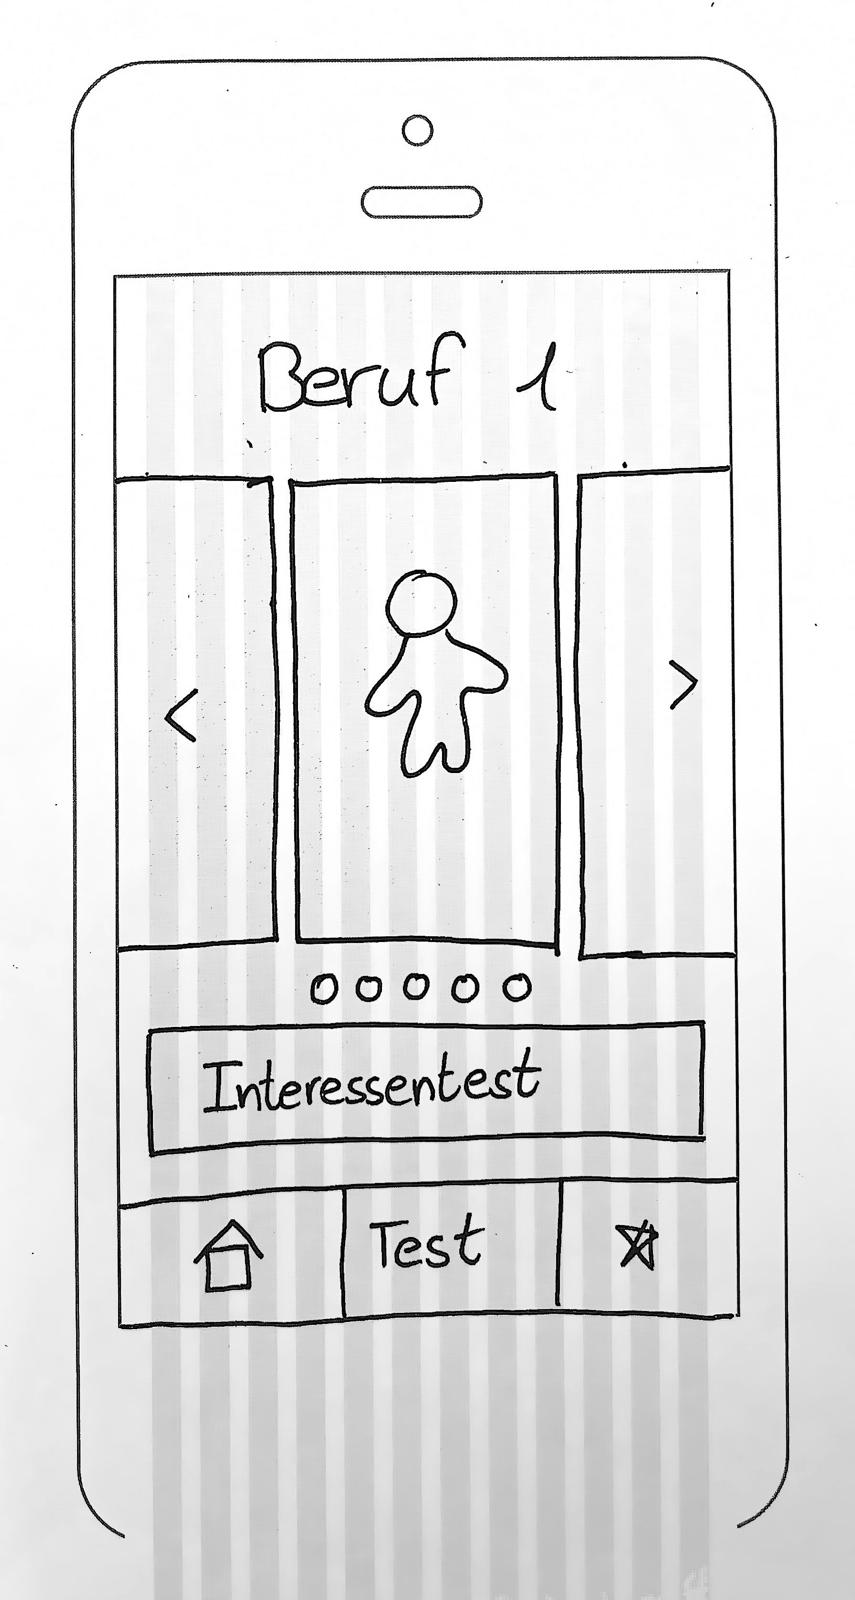 Beruf 1
< >
Interessentest
Test